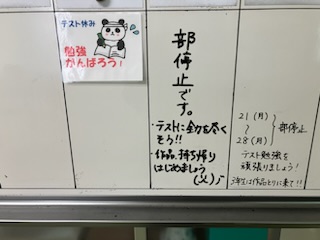 テスト休み
勉強
がんばろう！
部停止です。
・テストに全力を尽く
そう!!
・作品、持ち帰り
はじめましょう
21(月)
〜
28(月)
部停止
テスト勉強を
頑張りましょう！
3年生は作品とりに来て!!